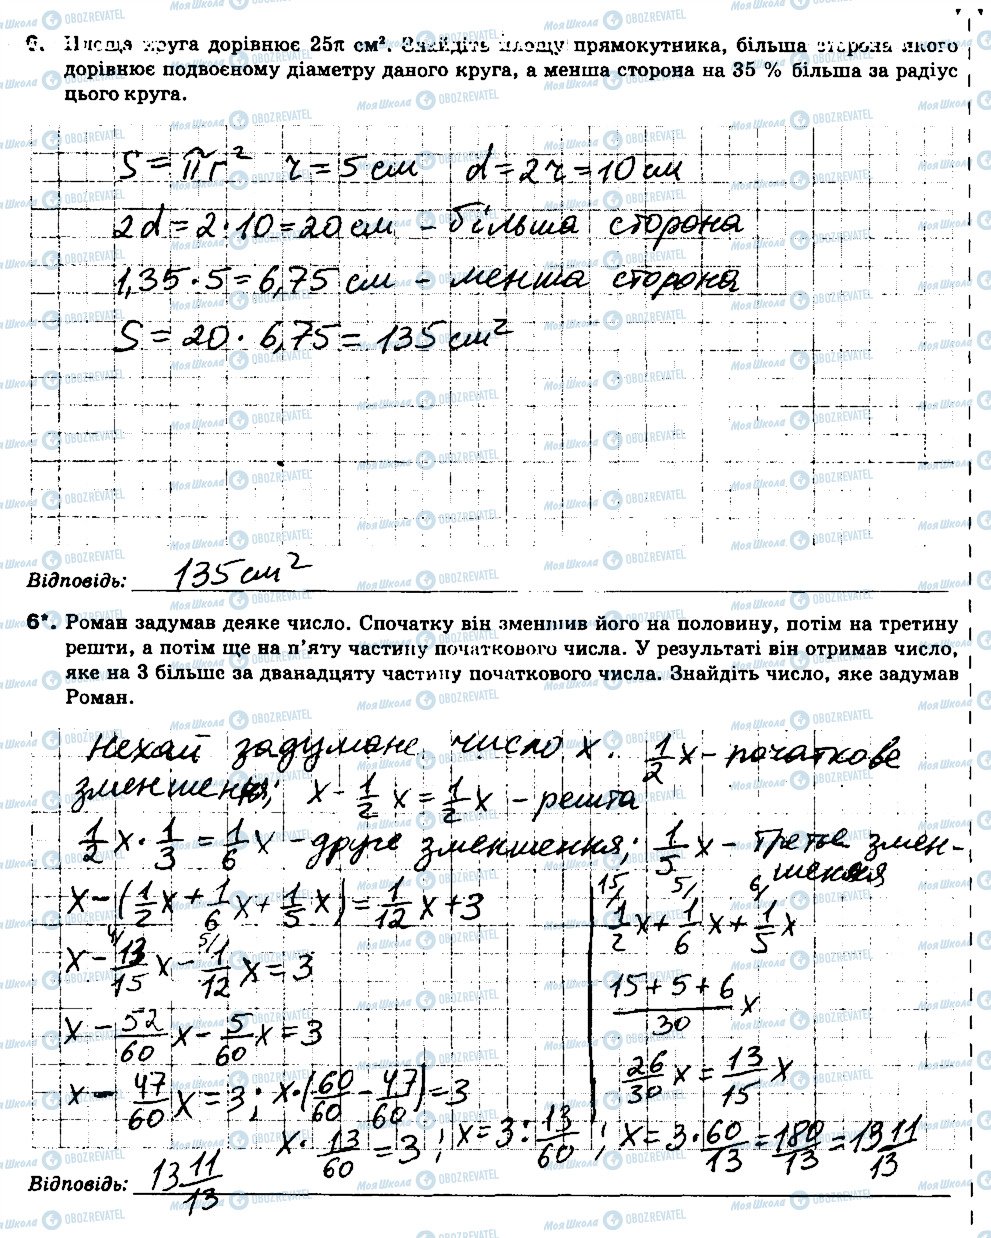 6. Площа круга дорівнює 25π см². Знайдіть площу прямокутника, більша сторона якого
дорівнює подвоєному діаметру даного круга, а менша сторона на 35 % більша за радіус
цього круга.
S = πr² r = 5 см d = 2r = 10 см
2d = 2 · 10 = 20 см – більша сторона
1,35 · 5 = 6,75 см – менша сторона
S = 20 · 6,75 = 135 см²
Відповідь: 135 см²
6*. Роман задумав деяке число. Спочатку він зменшив його на половину, потім на третину
решти, а потім ще на п'яту частину початкового числа. У результаті він отримав число,
яке на 3 більше за дванадцяту частину початкового числа. Знайдіть число, яке задумав
Роман.
Нехай задумане число x. 1/2 x – початкове
зменшення; x - 1/2 x = 1/2 x – решта
1/2 x · 1/3 = 1/6 x – друге зменшення; 1/5 x – третье змен-
шення
x - (1/2 x + 1/6 x + 1/5 x) = 1/12 x + 3
x - 4/ 13/15 x - 5/ 1/12 x = 3
x - 52/60 x - 5/60 x = 3
x - 47/60 x = 3; x · (60/60 - 47/60) = 3
15/ 5/ 6/
1/2 x + 1/6 x + 1/5 x
15 + 5 + 6 / 30 x
26/30 x = 13/15 x
x · 13/60 = 3; x = 3 : 13/60; x = 3 · 60/13 = 180/13 = 13 11/13
Відповідь: 13 11/13
МояШкола OBOZREVATEL